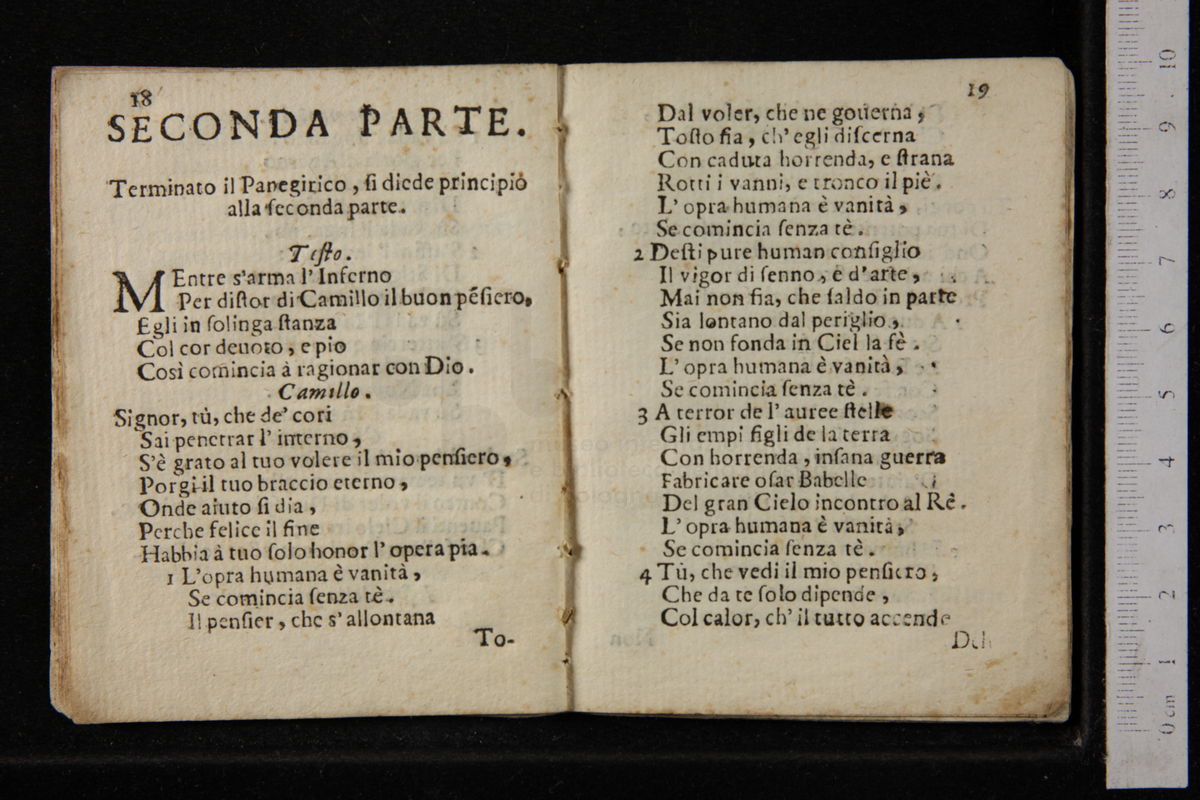 18
SECONDA PARTE.
Terminato il Panegirico, si diede principio
alla seconda parte.
Testo.
MEntre s'arma l'Inferno
Per distor di Camillo il buon pẽsiero,
Egli in solinga stanza
Col cor deuoto, e pio
Così comincia à ragionar con Dio.
Camillo.
Signor, tù, che de' cori
Sai penetrar l'interno,
S'è grato al tuo volere il mio pensiero,
Porgi il tuo braccio eterno,
Onde aiuto si dia,
Perche felice il fine
Habbia à tuo solo honor l'opera pia.
1 L'opra humana è vanità,
Se comincia senza tè.
Il pensier, che s'allontana
To-
19
Dal voler, che ne gouerna,
Tosto fia, ch'egli discerna
Con caduta horrenda, e strana
Rotti i vanni, e tronco il piè.
L'opra humana è vanità,
Se comincia senza tè.
2 Desti pure human consiglio
Il vigor di senno, e d'arte,
Mai non fia, che saldo in parte
Sia lontano dal periglio,
Se non fonda in Ciel la fè.
L'opra humana è vanità,
Se comincia senza tè.
3 A terror de l'auree stelle
Gli empi figli de la terra
Con horrenda, insana guerra
Fabricare osar Babelle
Del gran Cielo incontro al Rè.
L'opra humana è vanità,
Se comincia senza tè.
4 Tù, che vedi il mio pensiero,
Che da te solo dipende,
Col calor, ch'il tutto accende
Deh
0 cm 1 2 3 4 5 6 7 8 9 10